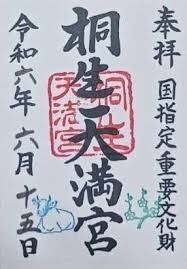 奉拝 国指定重要文化財
桐生天満宮
令和六年六月十五日